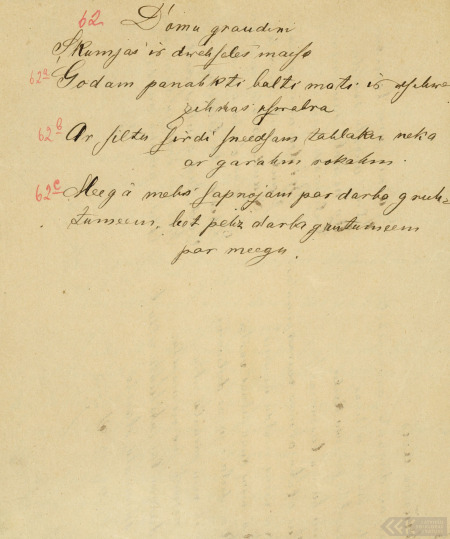 62. Domu graudini
Skumjas is dwehseles maise
62a Godam panahkti balti mati is
zihnas
62b Ar siltu sirdi sneedsam tahlaku neka
ar garahm rokahm.
62c Meegā mehs sapņojam par darba gruh-
tumeem, bet pehz darba gruhtumeem
par meegu.